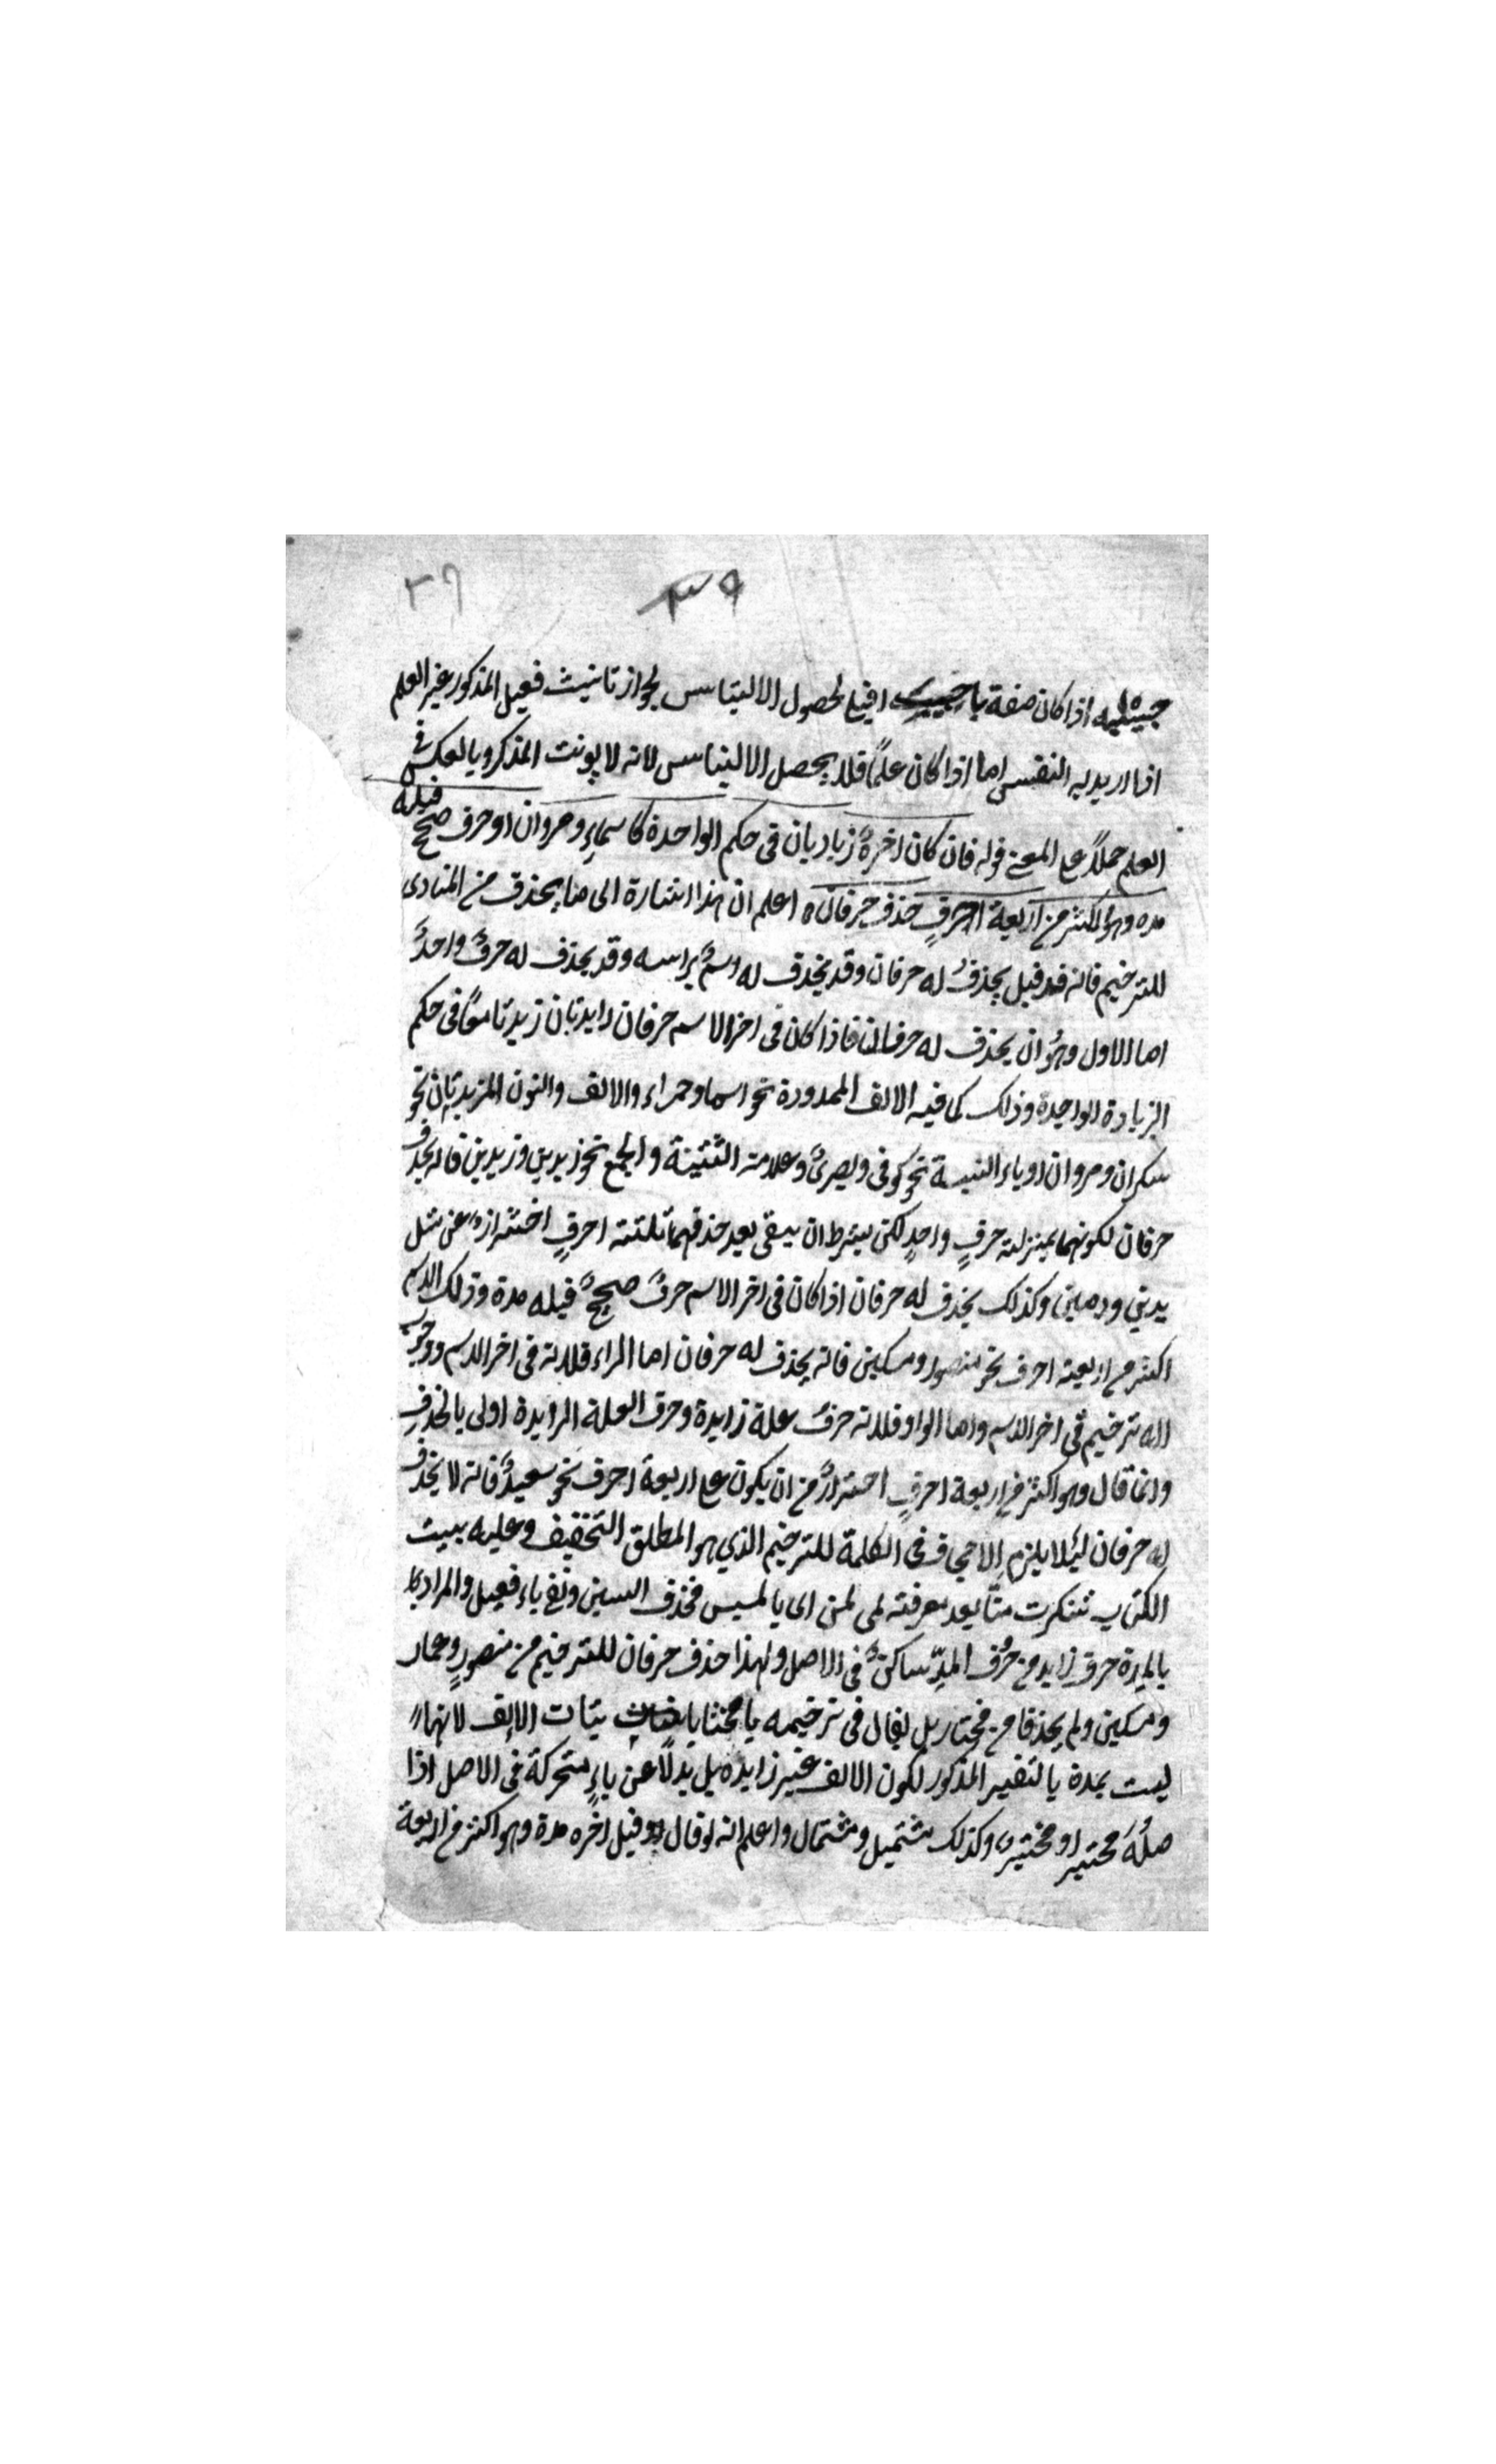 ٣٩ ٣٦
اذا كان صفة يا اقيع لحصول الالتباس لجواز تانيث فعيل المذكور غير العلم
اذا اريد به النفس اما اذا كان علمًا فلا يحصل الالتباس لانه لا يونث المذكر وبالعكس في
العلم حملاً على المعنى قوله فان كان اخرهُ زيادتان في حكم الواحدة كاسماءٍ ومروان او حرف صحيح قبله
مده وهو اكثر من اربعة احرفٍ حذف حرفان اعلم ان هذا اشارة الى ما يحذف من المنادى
للترخيم فانه قد قيل يحذفُ له حرفان وقد يحذف له اسمٌ براسه وقد يحذف له حرفٌ واحدٌ
اما الاول وهو ان يحذف له حرفان فاذا كان في اخر الاسم حرفان زايدتان زيدتا معًا في حكم
الزيادة الواحدة وذلك كما فيه الالف الممدودة نحو اسما وحمراء والالف والنون المزيدتان نحو
سكران ومروان او ياء النسبة نحو كوفي وبصريٌ وعلامة التثنية والجمع نحو زيدين وزيدين فانه يحذف
حرفان لكونهما بمنزلة حرفٍ واحدٍ لكن يشترط ان يبقى بعد حذفهما ثلثة احرفٍ احترازًا عن مثل
يدين ودمين وكذلك يحذف له حرفان اذا كان في اخر الاسم حرفٌ صحيحٌ قبله مدة وذلك الاسم
اكثر من اربعة احرف نحو منصور ومسكين فانه يحذف له حرفان اما الراء فلانه في اخر الاسم ووجب
الترخيم في اخر الاسم واما الواو فلانه حرف علة زايدة وحرف العلة الزايدة اولى بالحذفِ
وانما قال وهو اكثر من اربعة احرفٍ احترازٌ من ان يكون على اربعة احرف نحو سعيدٌ فانه لا يحذف
له حرفان ليئلا يلزم الاجحاف في الكلمة للترخيم الذي هو المطلق التخفيف وعليه بيت
الكتاب تنكرت منّا بعد معرفته لمى لمن اى يا لميس فحذف السين وبقى ياء فعيل والمراد
بالمدة حرف زايد من حرُف المدّ ساكنٌ في الاصل ولهذا حذف حرفان للترخيم من منصورٍ وعمار
ومسكين ولم يحذفا من مختار بل يقال في ترخيمه يا مختا باثبات الالف لانها
ليست بمدة بالتفسير المذكور لكون الالف غير زايده بل بدلًا عن ياءٍ متحركة في الاصل اذا
صلُهُ مختير او مختير وكذلك مشتميل ومشتمال واعلم انه لو قال وقبل اخره مدة وهو اكثر من اربعة